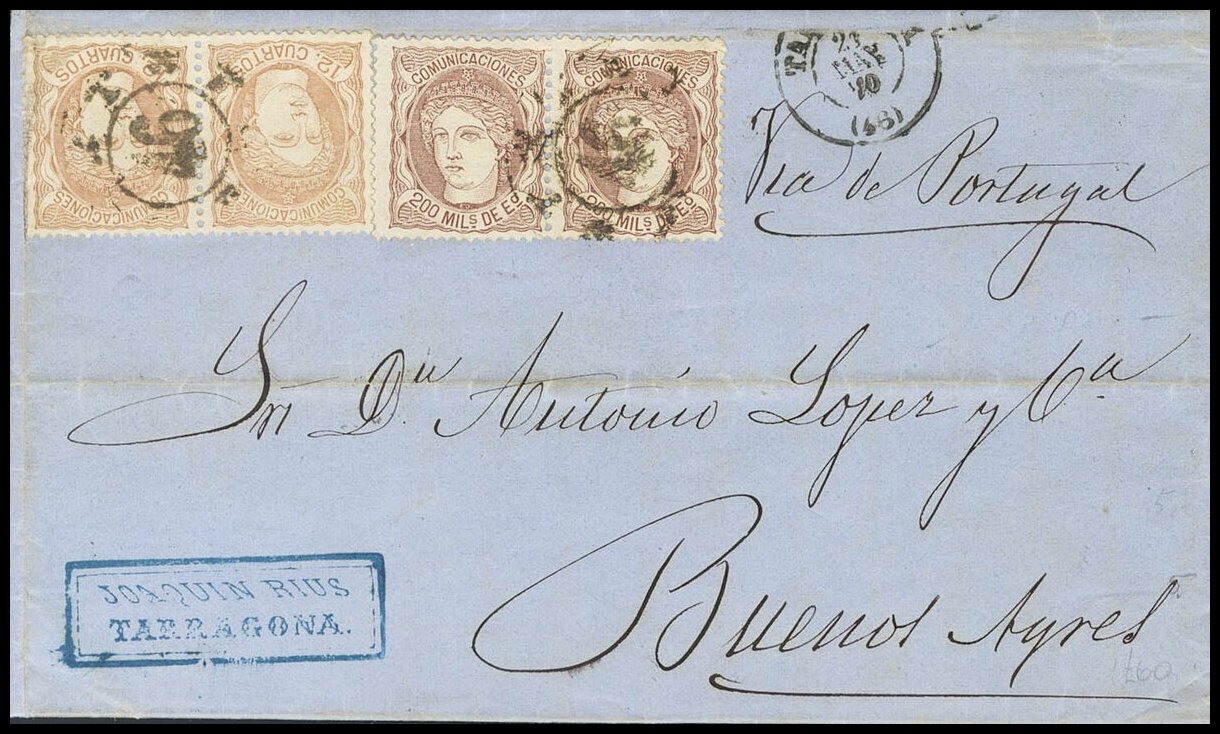 12 CUARTOS
COMUNICACIONES
12 CUARTOS
COMUNICACIONES
COMUNICACIONES
200 MILS DE EO.
COMUNICACIONES
200 MILS DE EO.
MAR
70
(46)
Via de Portugal
Sr Dn Antonio Lopez y Ca
Buenos Ayres
JOAQUIN RIUS
TARRAGONA.